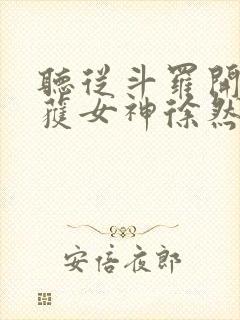 聽從斗羅開
獲女神徐然
安倍夜郎